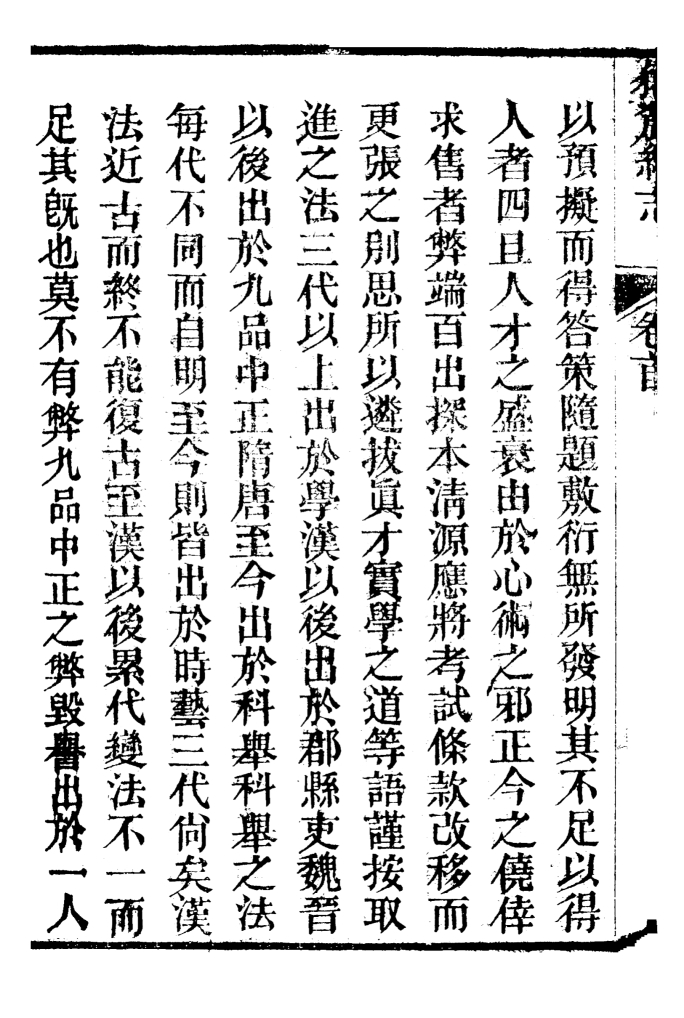 卷首
以預擬而得答策隨題敷衍無所發明其不足以得
人者四且人才之盛衰由於心術之邪正今之僥倖
求售者弊端百出探本清源應將考試條款改移而
更張之別思所以遴拔眞才實學之道等語謹按取
進之法三代以上出於學漢以後出於郡縣吏魏晉
以後出於九品中正隋唐至今出於科舉科舉之法
每代不同而自明至今則皆出於時藝三代尙矣漢
法近古而終不能復古至漢以後累代變法不一而
足其旣也莫不有弊九品中正之弊毀譽出於一人